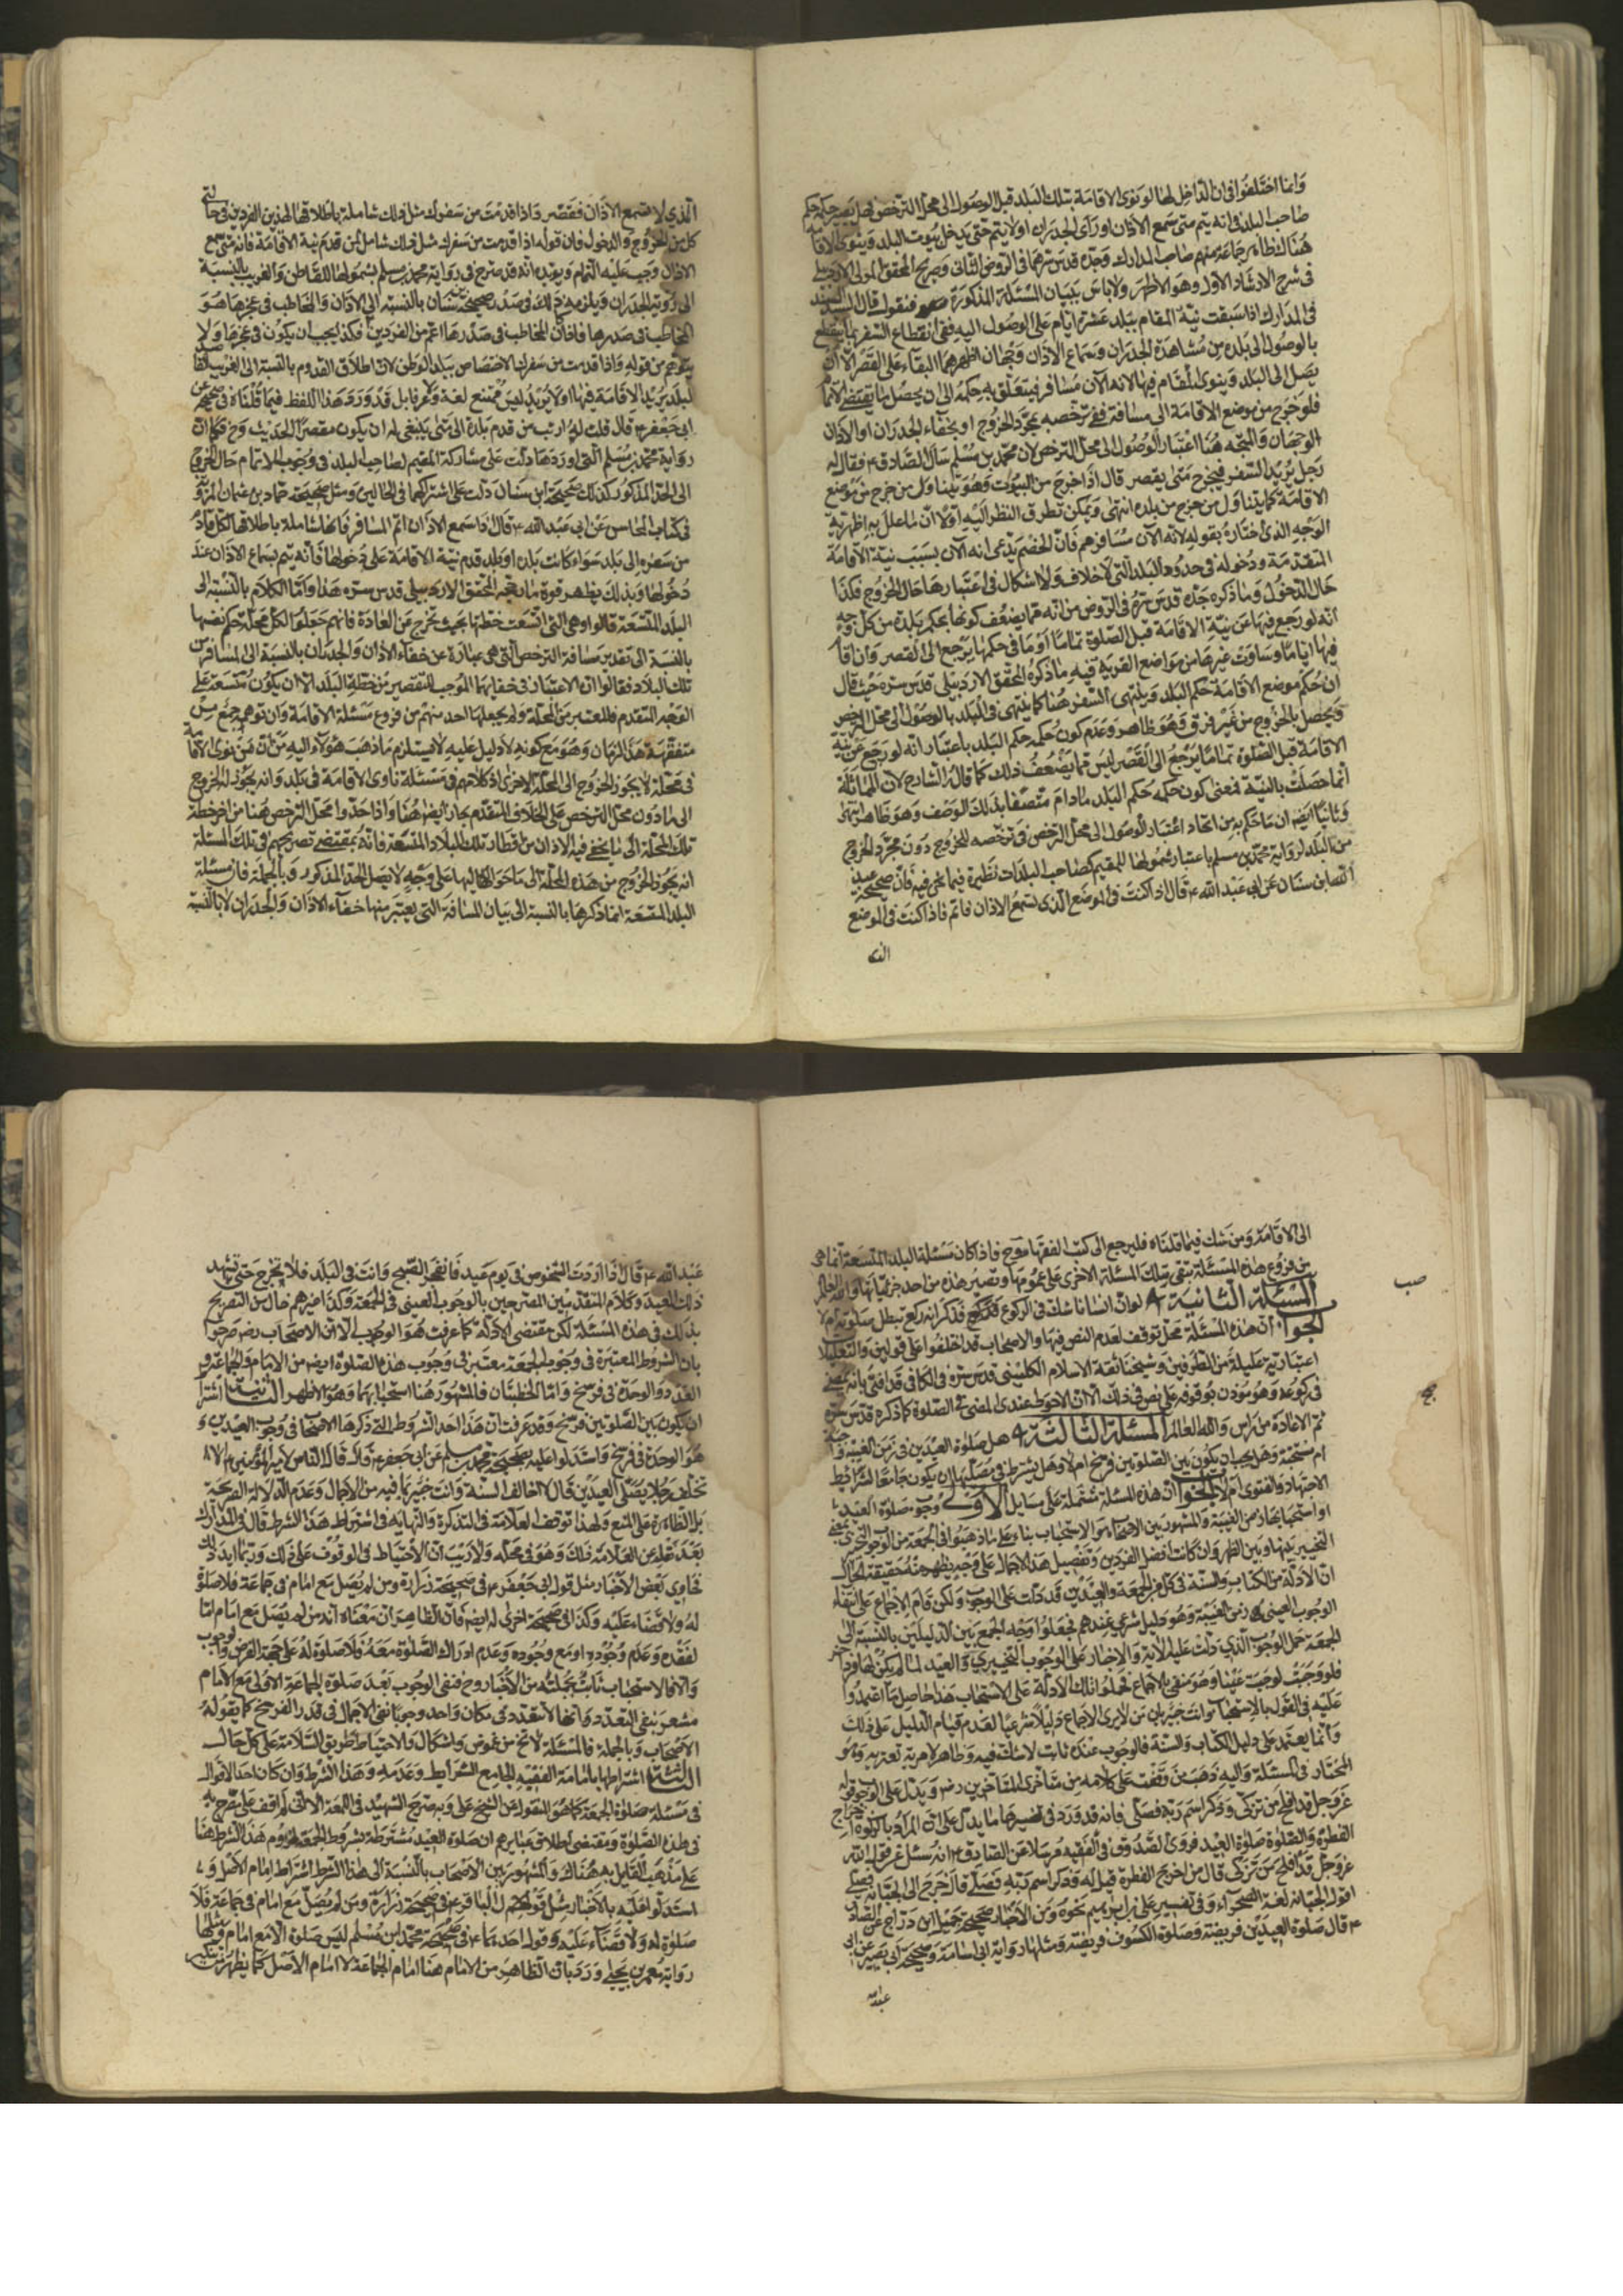 وانما اختلفوا في ان الداخل لها لو نوى الاقامة بتلك البلد قبل الوصول الى محل الترخص فهل يصير حكمه حكم
صاحب البلد في انه يتم متى سمع الاذان او رأى الجدران او لا يتم حتى يدخل بيوت البلد وينوي الاقامة
هناك ظاهر جماعة منهم صاحب المدارك وجده قدس سرهما في الروض الثاني وصريح المحقق المولى الاردبيلي
في شرح الارشاد الاول وهو الاظهر ولا باس ببيان المسئلة المذكورة فنقول قال السيد السند
في المدارك اذا سبقت نية المقام ببلد عشرة ايام على الوصول اليه ففي انقطاع السفر بما ينقطع
بالوصول الى بلده من مشاهدة الجدران وسماع الاذان وجهان اظهرهما البقاء على القصر الا ان
يصل الى البلد وينوي المقام فيها لانه الآن مسافر فيتعلق به حكمه الى ان يحصل ما يقتضي الاتمام
فلو خرج من موضع الاقامة الى مسافة ففي ترخصه بمجرد الخروج او بخفاء الجدران او الاذان
الوجهان والمتجه هنا اعتبار الوصول الى محل الترخص لان محمد بن مسلم سأل الصادق ع فقال له
رجل يريد السفر فيخرج متى يقصر قال اذا خرج من البيوت وهو يتناول من خرج من موضع
الاقامة كما يتناول من خرج من بلده انتهى ويمكن تطرق النظر اليه اولا ان ما علل به اظهرية
الوجه الذي اختاره بقوله لانه الآن مسافر هم فان الخصم يدعي انه الآن بسبب نية الاقامة
المتقدمة ودخوله في حدود البلد التي لا خلاف ولا اشكال في اعتبارها حال الخروج فكذا
حال الدخول وما ذكره جده قدس سره في الروض من انه مما يضعف كونها بحكم بلده من كل وجه
انه لو رجع فيها عن نية الاقامة قبل الصلوة تماما او ما في حكمها يرجع الى القصر وان اقام
فيها اياما وساوت غيرها من مواضع القرية ففيه ما ذكره المحقق الاردبيلي قدس سره حيث قال
ان حكم موضع الاقامة حكم البلد وينتهي السفر هنا كما ينتهي في البلد بالوصول الى محل الرخص
ويحصل بالخروج من غير فرق وهو ظاهر وعدم كون حكمه حكم البلد باعتبار انه لو رجع عن نية
الاقامة قبل الصلوة تماما يرجع الى القصر ليس مما يضعف ذلك كما قاله الشارح لان المماثلة
انما حصلت بالنية فمعنى كون حكمه حكم البلد ما دام متصفا بذلك الوصف وهو ظاهر انتهى
وثانيا ايضا ان ما حكم به من اتحاد اعتبار الوصول الى محل الترخص في ترخصه للخروج دون مجرد الخروج
من البلد لرواية محمد بن مسلم باعتبار شمولها للمقيم كصاحب البلد ات نظيره فيما نحن فيه فان صحيحة عبد
الله بن سنان عن ابي عبد الله ع قال اذا كنت في الموضع الذي تسمع الاذان فاتم فاذا كنت في الموضع
الذي
الذي لا تسمع الاذان فقصر واذا قدمت من سفرك مثل ذلك شاملة باطلاقها لهذين الفردين في حالتي
كل من الخروج والدخول فان قوله اذا قدمت من سفرك مثل ذلك شامل لمن قدم نية الاقامة فانه متى سمع
الاذان وجب عليه التمام ويؤيده انه قد صرح في رواية محمد بن مسلم بشمولها للقاطن والغريب بالنسبة
الى رؤية الجدران ويلزمه ذلك في صدر صحيحة ابن سنان بالنسبة الى الاذان والمخاطب في عجزها هو
المخاطب في صدرها فاذا كان المخاطب في صدرها اعم من الفردين فكذا يجب ان يكون في عجزها ولا
يتوهم من قوله واذا قدمت من سفرك الاختصاص ببلد الوطن لان اطلاق القدوم بالنسبة الى الغريب القاصد
لبلد يريد الاقامة فيها او لا يريد ليس ممتنع لغة وعرفا بل قد ورد هذا اللفظ فيما قلناه في صحيحة عن
ابي جعفر ع قال قلت له ارايت من قدم بلدة الى متى ينبغي له ان يكون مقصرا الحديث وح فكما ان
رواية محمد بن مسلم التي اوردها دلت على مشاركة المقيم لصاحب البلد في وجوب الاتمام حال الخروج
الى الحد المذكور كذلك صحيحة ابن سنان دلت على اشتراكهما في الحالين ومثل صحيحة حماد بن عثمان المروية
في كتاب المحاسن عن ابي عبد الله ع قال اذا سمع الاذان اتم المسافر فانها شاملة باطلاقها لكل قادم
من سفره الى بلد سواء كانت بلده او بلد قدم نية الاقامة على دخولها فانه يتم بسماع الاذان عند
دخولها وبذلك يظهر قوة ما رجحه المحقق الاردبيلي قدس سره هذا واما الكلام بالنسبة الى
البلد المتسعة قالوا وهي التي اتسعت خطتها بحيث تخرج عن العادة فانهم جعلوا لكل محلة حكم نفسها
بالنسبة الى تقدير مسافة الترخص التي هي عبارة عن خفاء الاذان والجدران بالنسبة الى المسافر من
تلك البلاد فقالوا ان الاعتبار في خفائهما الموجب للتقصير من خطة البلد الا ان يكون متسعة على
الوجه المتقدم فالمعتبر من المحلة ولم يجعلها احد منهم من فروع مسئلة الاقامة وان توهمه جمع من
متفقهة هذا الزمان وهو مع كونه لا دليل عليه لا يستلزم ما ذهب هؤلاء اليه من ان من نوى الاقامة
في محلة لا يجوز الخروج الى المحلة الاخرى اذ كلامهم في مسئلة ناوي الاقامة في بلد وانه يجوز له الخروج
الى ما دون محل الترخص على الخلاف المتقدم جار ايضا هنا واذا حدوا محل الترخص هنا من آخر خطة
تلك المحلة الى ما يخفى فيه الاذان من اقطار تلك البلاد المتسعة فانه بمقتضى تصريحهم في تلك المسئلة
انه يجوز الخروج من هذه المحلة الى ما حواليها على وجه لا يصل الحد المذكور وبالجملة فان مسئلة
البلد المتسعة انما ذكرها بالنسبة الى بيان المسافة التي يعتبر منها خفاء الاذان والجدران لا بالنسبة
الى الاقامة ومن شك فيما قلناه فليرجع الى كتب الفقهاء وح فاذا كان مسئلة البلد المتسعة انما هي
من فروع هذه المسئلة تبقى تلك المسئلة الاخرى على عمومها وتصير هذه من احد جزئياتها والله العالم
المسئلة الثانية لو ان انسانا شك في الركوع فركع فذكر انه ركع تبطل صلوته ام لا
الجواب ان هذه المسئلة محل توقف لعدم النص فيها والاصحاب قد اختلفوا على قولين والتعليلات
اعتبارية عليلة من الطرفين وشيخنا ثقة الاسلام الكليني قدس سره في الكافي قد افتى بانه يمضي
في ركوعه وهو مؤذن بوقوفه على نص في ذلك الا ان الاحوط عندي المضي في الصلوة كما ذكره قدس سره
ثم الاعادة من راس والله العالم المسئلة الثالثة هل صلوة العيدين في زمن الغيبة واجبة
ام مستحبة وهل يجب ان يكون بين الصلوتين فرسخ ام لا وهل يشترط في مصليها ان يكون جامعا لشرائط
الاجتهاد والفتوى ام لا الجواب ان هذه المسئلة مشتملة على مسايل الاولى وجوب صلوة العيد
او استحبابها زمن الغيبة والمشهور بين الاصحاب هو الاستحباب بناء على ما ذهبوا في الجمعة من الوجوب التخييري بمعنى
التخيير بينها وبين الظهر وان كانت افضل الفردين وتفصيل هذا الاجمال على وجه يظهر منه حقيقة الحال
ان الادلة من الكتاب والسنة في كل من الجمعة والعيدين قد دلت على الوجوب ولكن قام الاجماع على انتفاء
الوجوب العيني في زمن الغيبة وهو دليل شرعي عندهم فجعلوا وجه الجمع بين الدليلين بالنسبة الى
الجمعة حمل الوجوب الذي دلت عليه الآية والاخبار على الوجوب التخييري والعيد لما لم يكن لها فرد آخر
فلو وجبت لوجبت عينا وهو منفي بالاجماع فحملوا تلك الادلة على الاستحباب هذا حاصل ما اعتمدوا
عليه في القول بالاستحباب وانت خبير بان من لا يرى الاجماع دليلا شرعيا لعدم قيام الدليل على ذلك
وانما يعتمد على دليل الكتاب والسنة فالوجوب عنده ثابت لا شك فيه وظاهر لا مرية تعتريه وهو
المختار في المسئلة واليه ذهب من وقفت على كلامه من متأخري المتأخرين رض ويدل على الوجوب قوله
عز وجل قد افلح من تزكى وذكر اسم ربه فصلى فانه قد ورد في تفسيرها ما يدل على ان المراد بالزكوة اخراج
الفطرة والصلوة صلوة العيد فروى الصدوق في الفقيه مرسلا عن الصادق ع انه سئل عن قول الله
عز وجل قد افلح من تزكى قال من اخرج الفطرة قيل له وذكر اسم ربه فصلى قال خرج الى الجبانة فصلى
اقول الجبانة لغة الصحراء وفي تفسير علي بن ابراهيم نحوه ومن الاخبار صحيحة جميل بن دراج عن الصادق
ع قال صلوة العيدين فريضة وصلوة الكسوف فريضة ومثلها رواية ابي اسامة وصحيحة ابي بصير عن ابي
عبد الله
عبد الله ع قال اذا اردت الشخوص في يوم عيد فانفجر الصبح وانت في البلد فلا تخرج حتى تشهد
ذلك العيد وكلام المتقدمين المصرحين بالوجوب العيني في الجمعة وكذا غيرهم خال من التصريح
بذلك في هذه المسئلة لكن مقتضى الادلة كما عرفت هو الوجوب الا ان الاصحاب رض صرحوا
بان الشروط المعتبرة في وجوب الجمعة معتبرة في وجوب هذه الصلوة ايضا من الامام والجماعة و
العدد والوحدة في فرسخ واما الخطبتان فالمشهور هنا استحبابهما وهو الاظهر الثانية اشتراط
ان يكون بين الصلوتين فرسخ وقد عرفت ان هذا احد الشروط التي ذكرها الاصحاب في وجوب العيدين و
هو الوحدة في فرسخ واستدلوا عليه بصحيحة محمد بن مسلم عن ابي جعفر ع قال قال الناس لامير المؤمنين ع الا
تخلف رجلا يصلي العيدين قال لا اخالف السنة وانت خبير بما فيه من الاجمال وعدم الدلالة الصريحة
بل الظاهرة على المنع ولهذا توقف العلامة في التذكرة والنهاية في اشتراط هذا الشرط قال في المدارك
بعد نقله عن العلامة ذلك وهو في محله ولا ريب ان الاحتياط في الوقوف على ذلك وربما ايد ذلك
فحاوي بعض الاخبار مثل قول ابي جعفر ع في صحيحة زرارة ومن لم يصل مع امام في جماعة فلا صلوة
له ولا قضاء عليه وكذا في صحيحة اخرى له ايضا فان الظاهر ان معناه انه من لم يصل مع امام اما
لفقده وعدم وجوده او مع وجوده وعدم ادراك الصلوة معه فلا صلوة له على جهة الفرض والوجوب
والا فالاستحباب ثابت بجملة من الاخبار وح فنفي الوجوب بعد صلوة الجماعة الاولى مع الامام
مشعر بنفي التعدد وانها لا تتعدد في مكان واحد وجوبا نفي الاجمال في قدر الفرسخ كما يقوله
الاصحاب وبالجملة فالمسئلة لا تخ من غموض واشكال والاحتياط طريق السلامة على كل حال
الثالثة اشتراطها بامامة الفقيه الجامع الشرايط وعدمه وهذا الشرط وان كان احد الاقوال
في مسئلة صلوة الجمعة كما هو المنقول عن الشيخ علي وبه صرح الشهيد في اللمعة الا اني لم اقف على مصرح به
في هذه الصلوة ومقتضى اطلاق عبايرهم ان صلوة العيد مشترطة بشروط الجمعة لزوم هذا الشرط هنا
على مذهب القايل به هناك والمشهور بين الاصحاب بالنسبة الى هذا الشرط اشتراط امام الاصل و
استدلوا عليه بالاخبار مثل قول الباقر ع في صحيحة زرارة ومن لم يصل مع امام في جماعة فلا
صلوة له ولا قضاء عليه وقول احدهما ع في صحيحة محمد بن مسلم ليس صلوة الا مع امام ومثلها
رواية معمر بن يحيى ورد بان الظاهر من الامام هنا امام الجماعة لا امام الاصل كما يظهر من تنكير